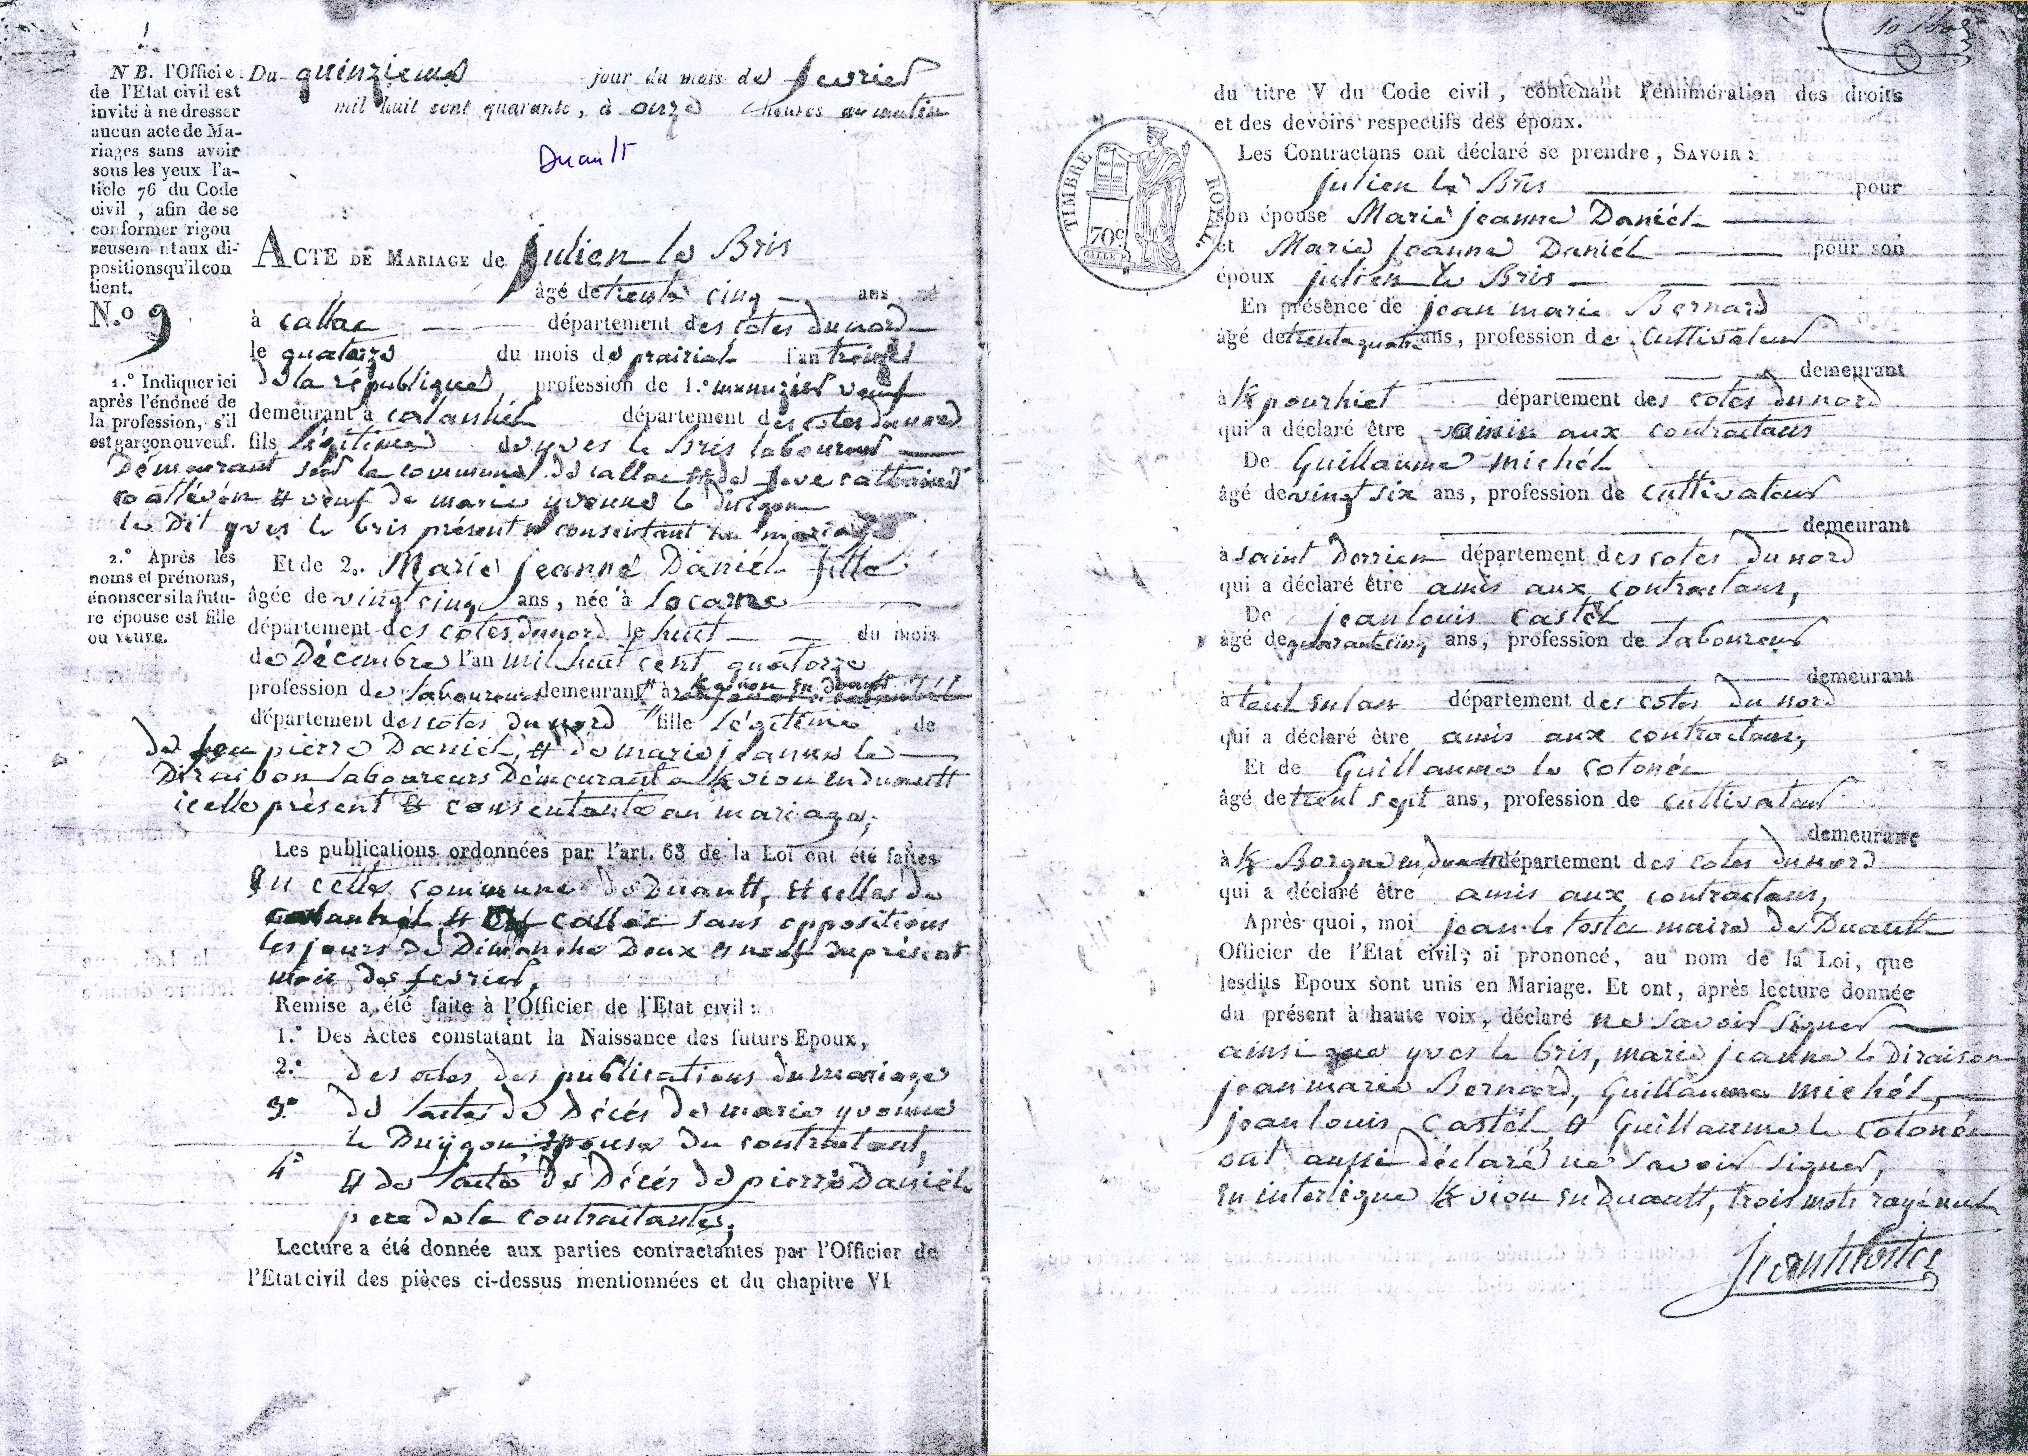 NB. l'Officier
de l'Etat civil est
invité à ne dresser
aucun acte de Ma-
riages sans avoir
sous les yeux l'a-
ticle 76 du Code
civil, afin de se
conformer rigou
reusem nt aux di-
positions qu'il con
tient.
N.o 9
1.o Indiquer ici
après l'énoncé de
la profession, s'il
est garçon ou veuf.
2.o Après les
noms et prénoms,
énonscer si la futu-
re épouse est fille
ou veuve.
Du quinzieme jour du mois de fevrier
mil huit cent quarante, à onze heures du matin
Duault
ACTE DE MARIAGE de julien le Bris
âgé de trente cinq ans né
à callac département des cotes du nord
le quatorze du mois de prairial l'an treize
de la république, profession de 1.o menuzier veuf
demeurant à calanhel département des cotes du nord
fils légitime de yves le Bris laboureur
Démeurant sur la commune de callac et de feue catherine
coatléven et veuf de marie yvonne le
le Dit yves le bris présent et consentant au mariage
Et de 2.o Marie jeanne Daniél fille
âgée de vingt cinq ans, née à locarne
département des cotes du nord le huit du mois
de Décembre l'an mil huit cent quatorze
profession de laboureur demeurant à k vion en duault
département des cotes du nord fille légitime de
de feu pierre Daniel, et de marie jeanne le
Diraison laboureurs Démeurant a k vion en duault
icelle présent et consentante au mariage,
Les publications ordonnées par l'art. 63 de la Loi ont été faites
En cette commune de Duault, et celles de
calanhel et callac sans oppositions
les jours de Dimanche Deux et neuf du présent
mois de fevrier,
Remise a été faite à l'Officier de l'Etat civil:
1.o Des Actes constatant la Naissance des futurs Epoux,
2.o des actes des publications du mariage
3o de l'acte de Décés de marie yvonne
le Duygou, épouse du contractant,
4o et de l'acte de Décés de pierre Daniél
pere de la contractante,
Lecture a été donnée aux parties contractantes par l'Officier de
l'Etat civil des pièces ci-dessus mentionnées et du chapitre VI
du titre V du Code civil, contenant l'énumération des droits
et des devoirs respectifs des époux.
TIMBRE ROYAL.
70c
Les Contractans ont déclaré se prendre, SAVOIR:
julien le Bris pour
son épouse Marie jeanne Daniél
et Marie Jeanne Daniél pour son
époux julien le Bris
En présence de jean marie Bernard
âgé de trente quatre ans, profession de cultivateur
demeurant
à k pourhiet département des cotes du nord
qui a déclaré être amin aux contractans
De Guillaume michél
âgé de vingt six ans, profession de cultivateur
demeurant
à saint Derrien département des cotes du nord
qui a déclaré être amis aux contractans,
De jean louis Castél
âgé de quarante cinq ans, profession de laboureur
demeurant
à département des cotes du nord
qui a déclaré être amis aux contractans,
Et de Guillaume le cotonéc
âgé de trent sept ans, profession de cultivateur
demeurant
à k Borgne en duault département des cotes du nord
qui a déclaré être amis aux contractans,
Après quoi, moi jean le coster maire de Duault
Officier de l'Etat civil, ai prononcé, au nom de la Loi, que
lesdits Epoux sont unis en Mariage. Et ont, après lecture donnée
du présent à haute voix, déclaré ne savoir signer
ainsi que yves le bris, marie jeanne le Diraison
jean marie Bernard, Guillaume michél,
jean louis Castél, et Guillaume le cotonéc
ont aussi déclaré ne savoir signer,
En interligne k vion en Duault, trois mots rayé nul